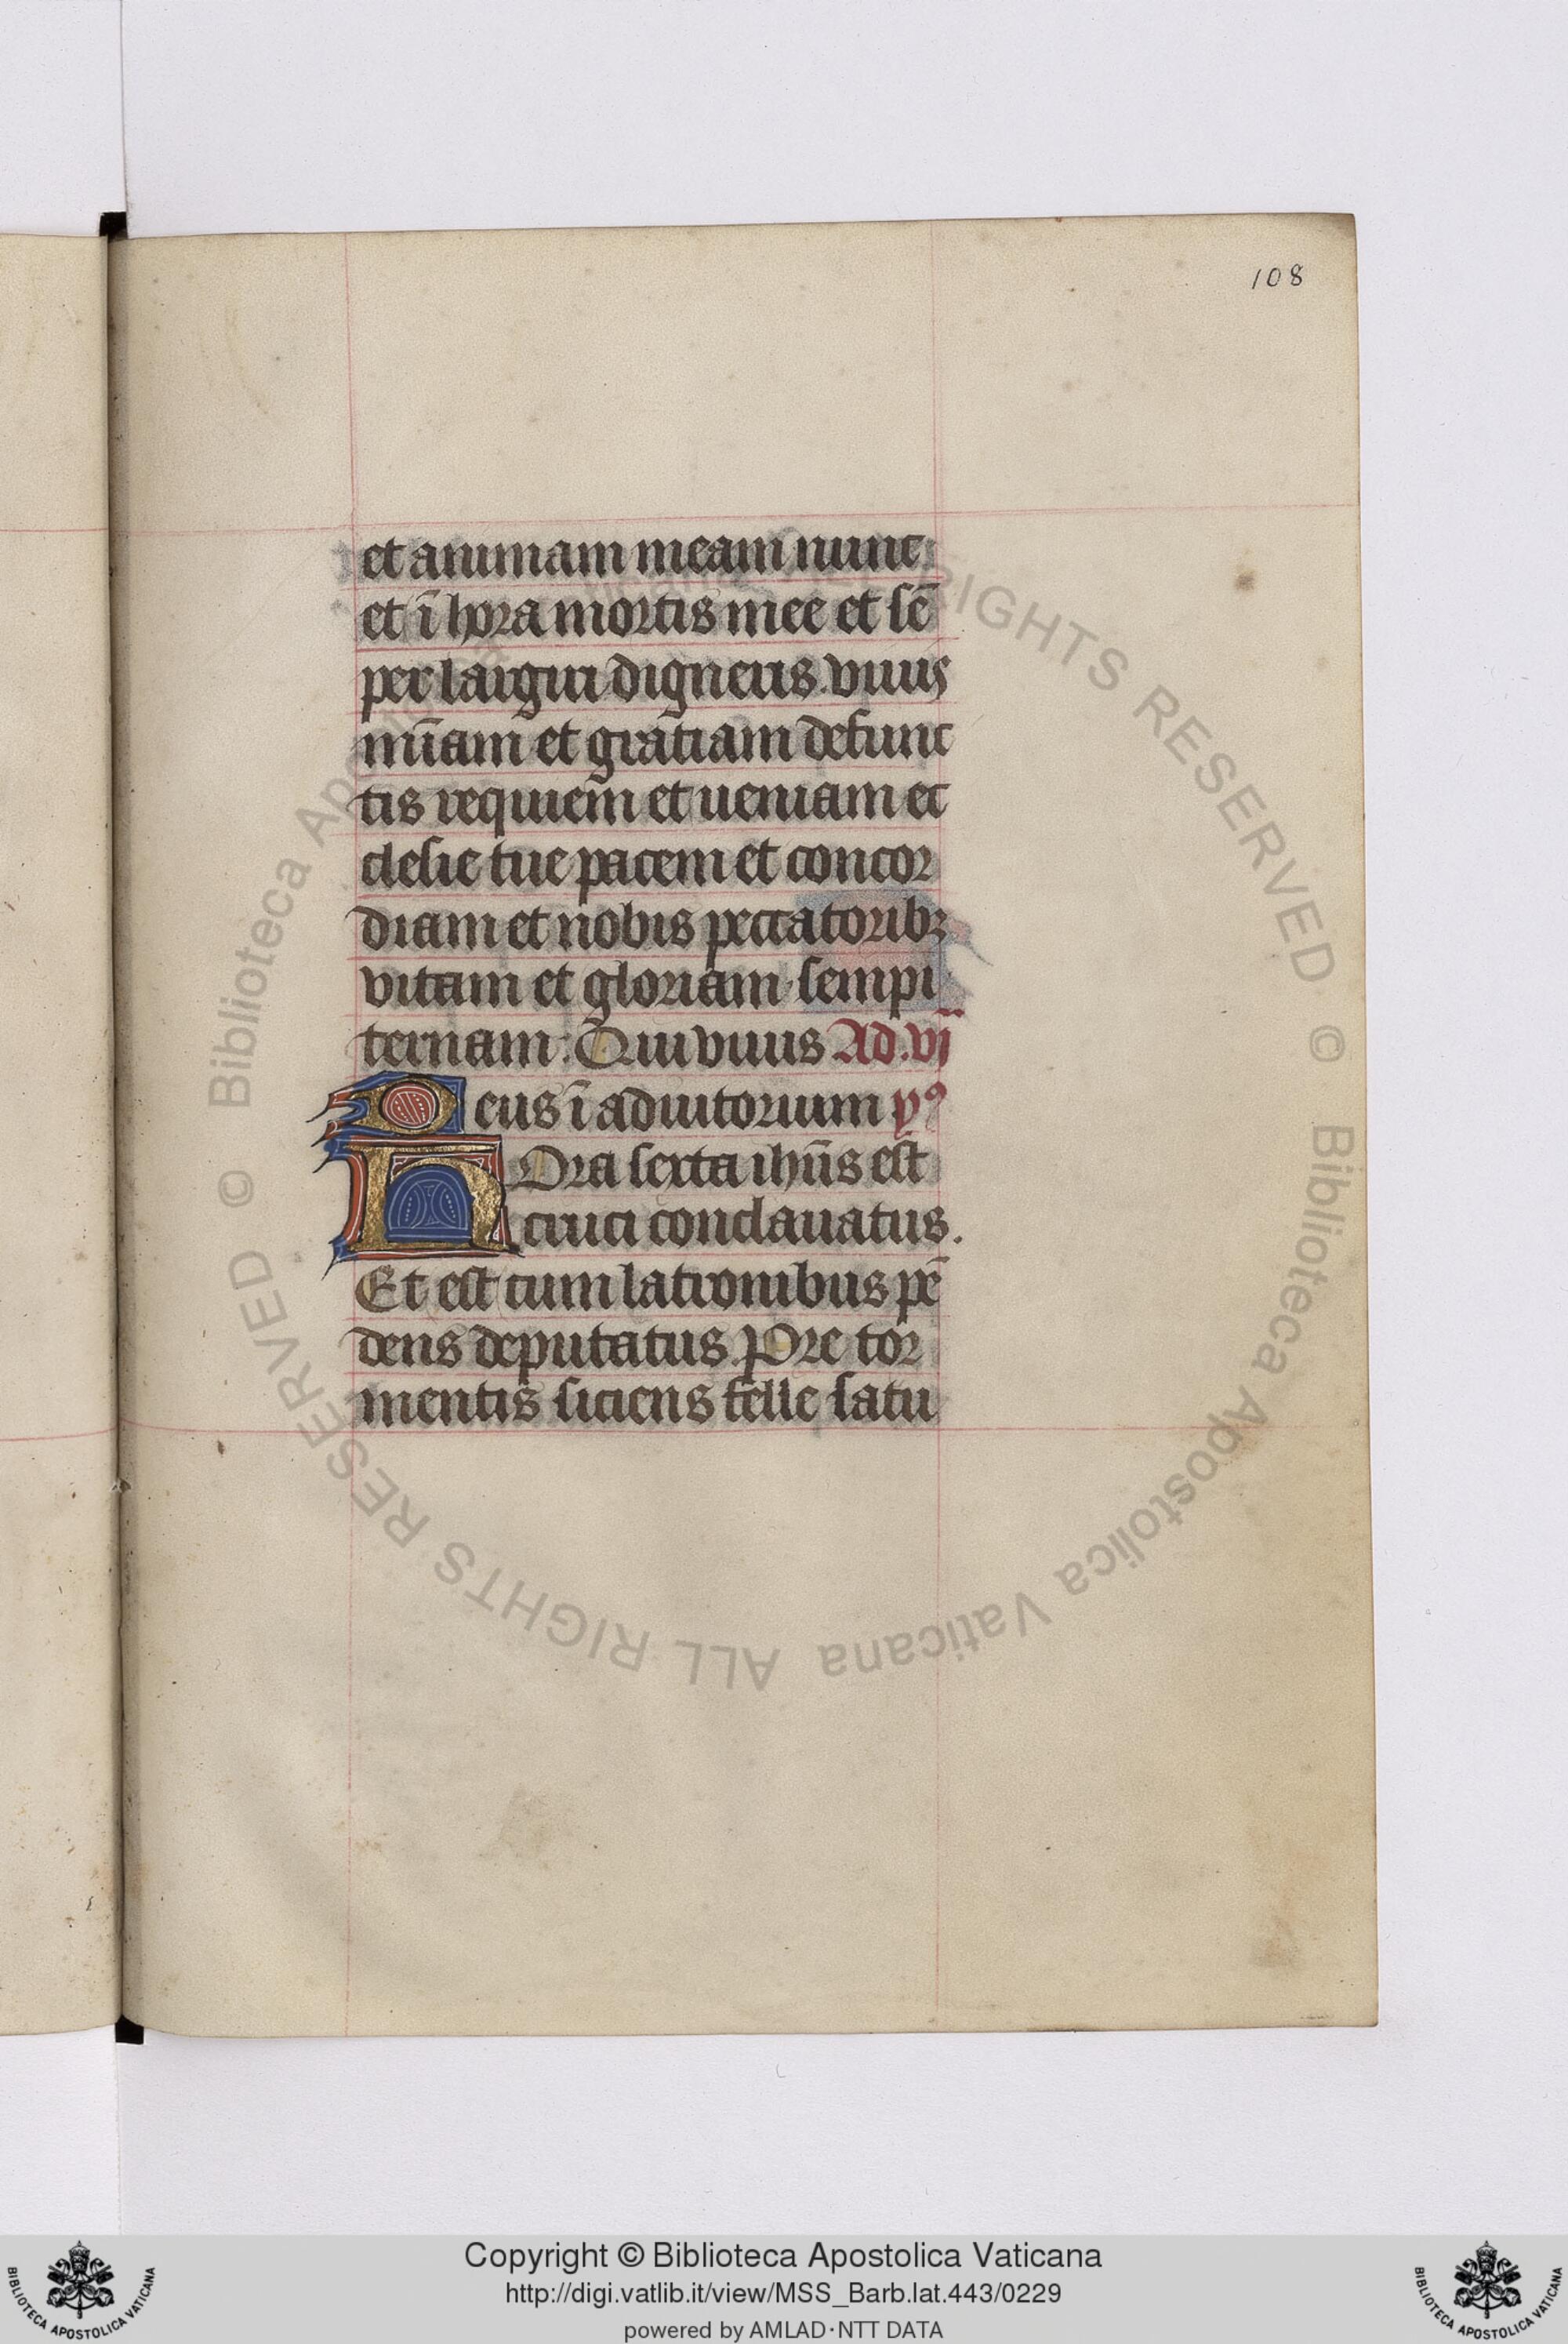 108
et animam meam nunc
et ī hora mortis mee et sē
per largiri digneris. viuis
mīam et gratiam defunc
tis requiem et ueniam ec
clesie tue pacem et concor
diam et nobis peccatoribꝫ
vitam et gloriam sempi
ternam. Qui viuis Ad. vj
Deus ī adiutorium ỹꝰ
hOra sexta ihūs est
cruci conclauatus.
Et est cum latronibus pē
dens deputatus. Pre tor
mentis siciens felle satu
© Biblioteca Apostolica Vaticana ALL RIGHTS RESERVED © Biblioteca Apostolica Vaticana ALL RIGHTS RESERVED
Copyright © Biblioteca Apostolica Vaticana
http://digi.vatlib.it/view/MSS_Barb.lat.443/0229
powered by AMLAD·NTT DATA
BIBLIOTECA APOSTOLICA VATICANA
BIBLIOTECA APOSTOLICA VATICANA